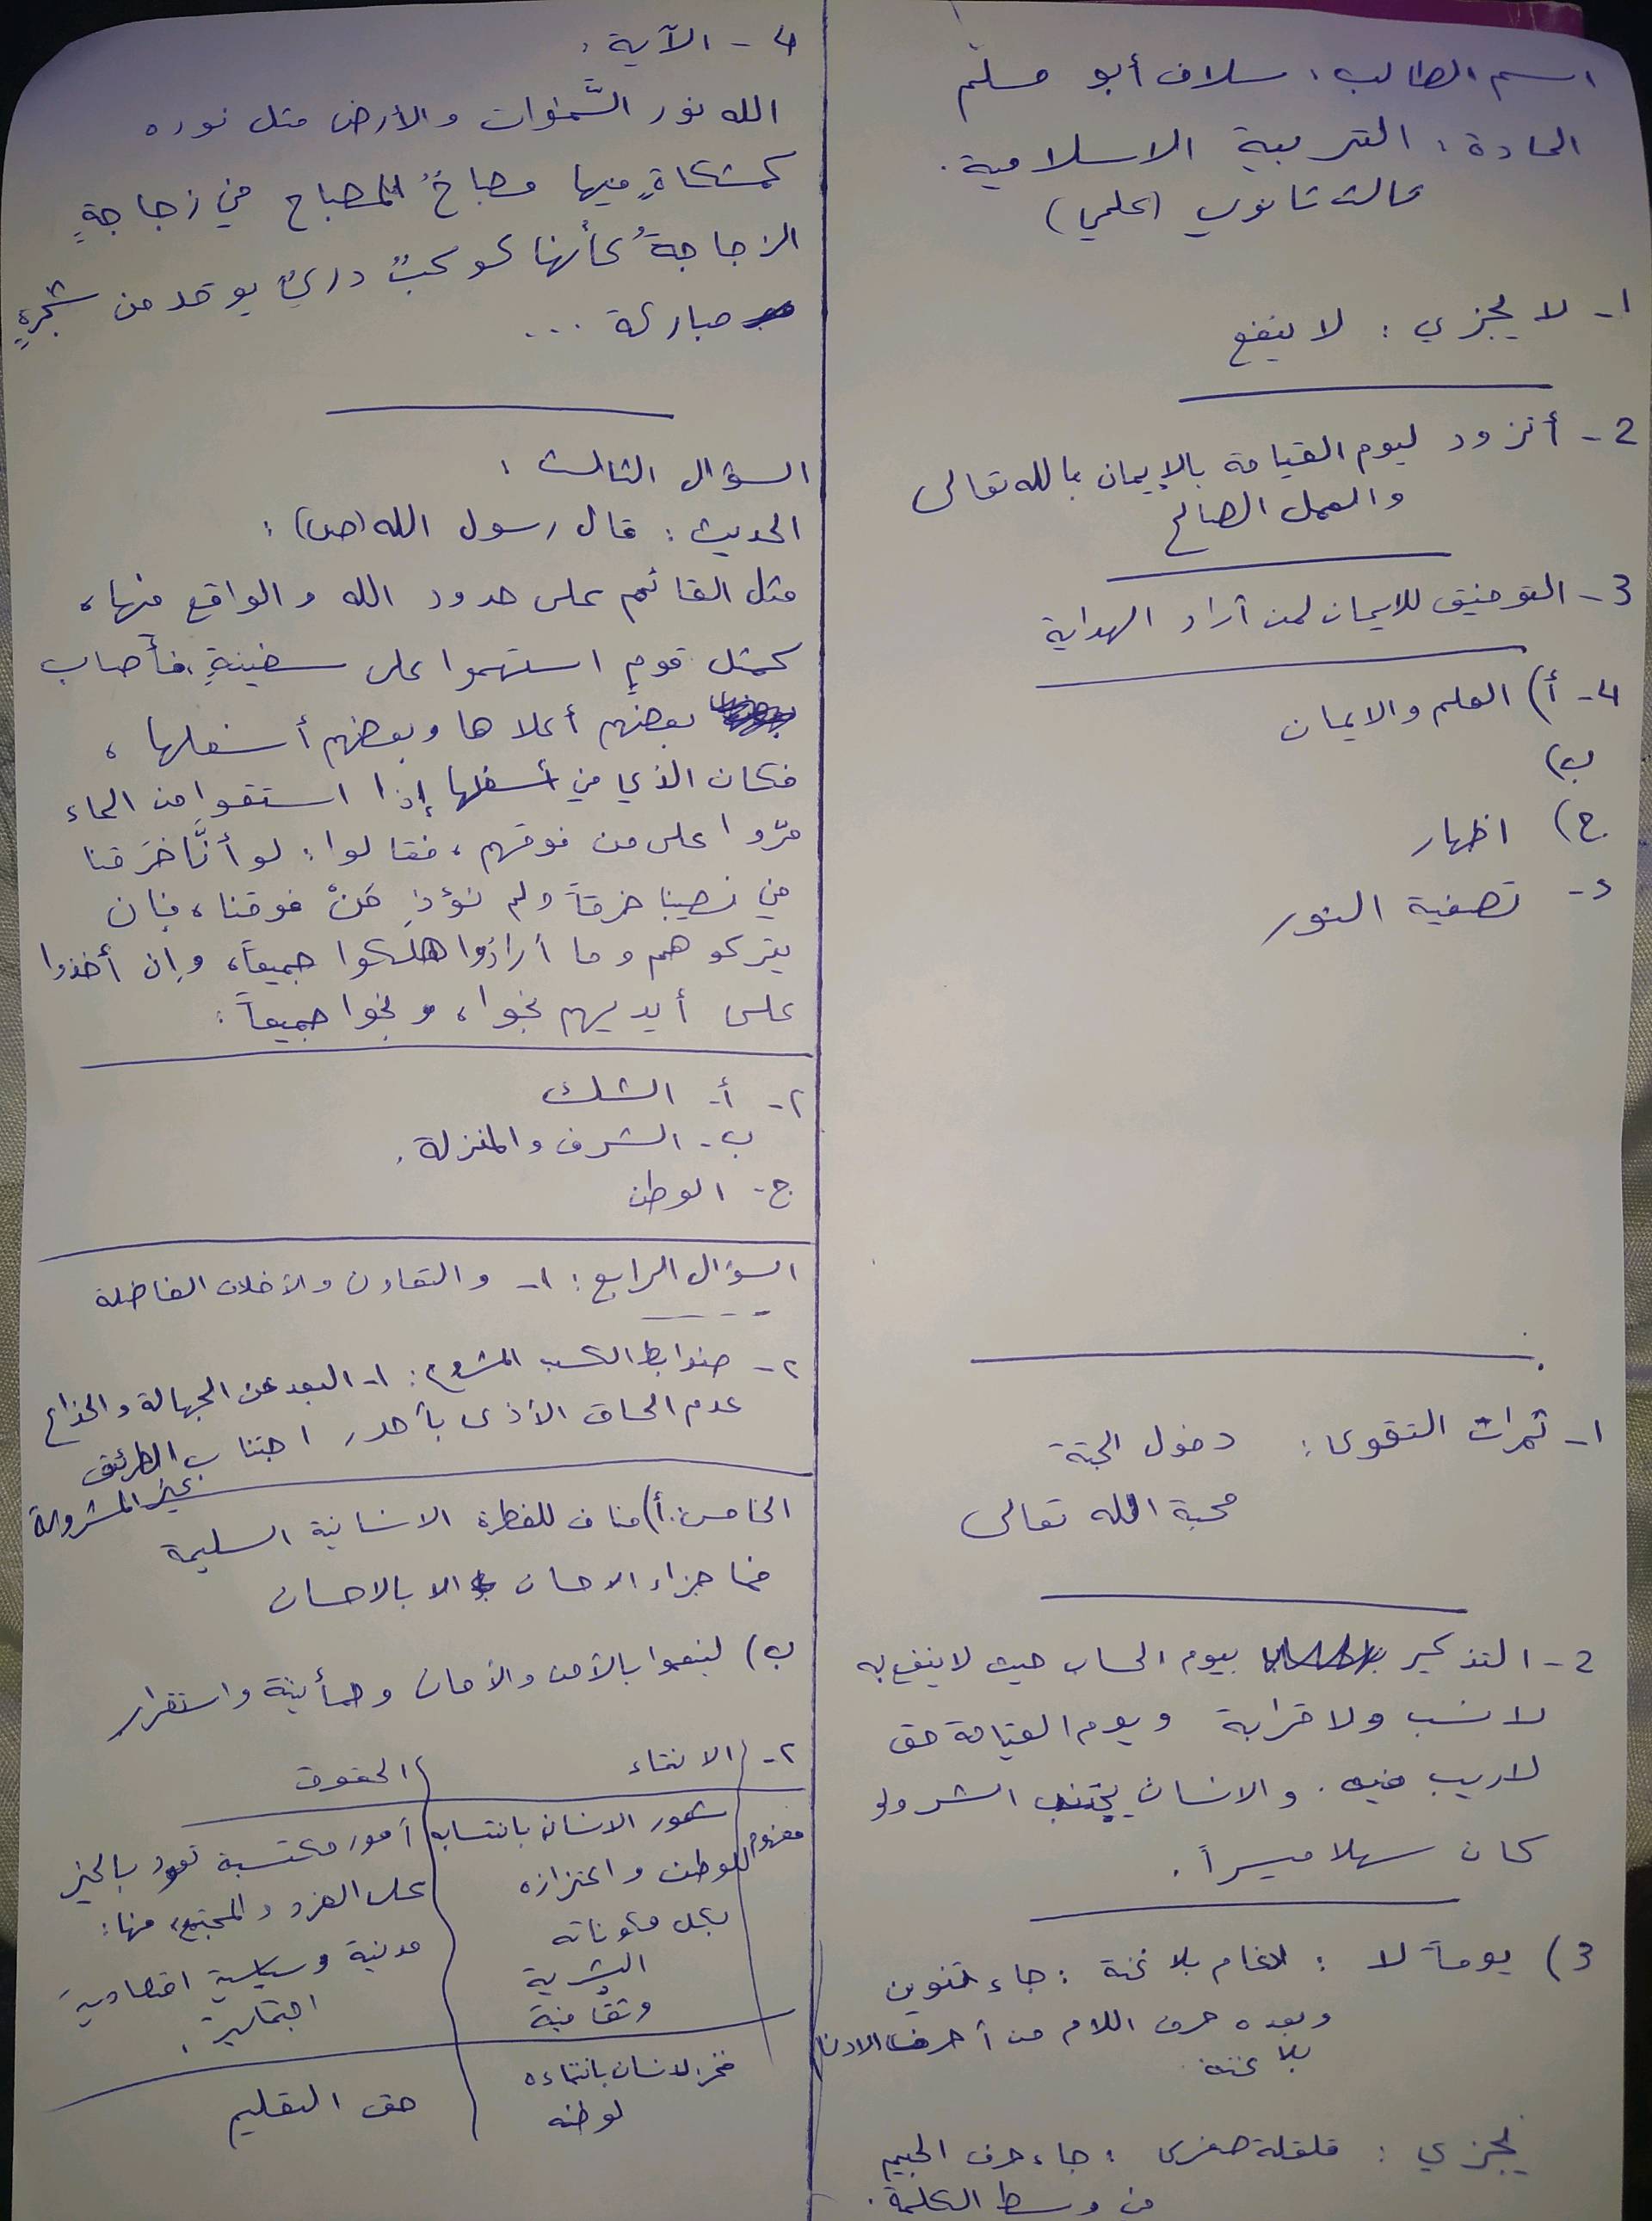 اسم الطالب: سلاف أبو مسلم
المادة: التربية الاسلامية.
ثالث ثانوي (علمي)
1- لا يجزي: لا ينفع
2- أتزود ليوم القيامة بالإيمان بالله تعالى
والعمل الصالح
3- التوفيق للايمان لمن أراد الهداية
4- أ) العلم والايمان
ب)
ج) اظهار
د- تصفية النور
1- ثمرات التقوى: دخول الجنة
محبة الله تعالى
2- التذكير بيوم الحساب حيث لا ينفع به
لا نسب ولا قرابة ويوم القيامة حق
لا ريب فيه. والانسان يجتنب الشر ولو
كان سهلا ميسراً.
3) يوماً لا: ادغام بلا غنة: جاء تنوين
وبعده حرف اللام من أحرف الادغا
بلا غنة
يجزي: قلقلة صغرى: جاء حرف الجيم
من وسط الكلمة.
4- الآية:
الله نور السَّموات والأرض مثل نوره
كمشكاةٍ فيها مصباحٌ المصباح في زجاجةٍ
الزجاجةُ كأنها كوكبٌ دريٌ يوقد من شجرةٍ
مباركة ...
السؤال الثالث:
الحديث: قال رسول الله (ص):
مثل القائم على حدود الله والواقع فيها،
كمثل قومٍ استهموا على سفينةٍ، فأصاب
بعضهم أعلاها وبعضهم أسفلها،
فكان الذي في أسفلها إذا استقوا من الماء
مرّوا على من فوقهم، فقالوا: لو أنَّا خرَقنا
في نصيبنا خرقاً ولم نؤذِ مَنْ فوقنا، فإن
يتركوهم وما أرادُوا هلكوا جميعاً، وإن أخذوا
على أيديهم نجوا، ونجوا جميعاً:
٢- أ- الشك
ب- الشرف والمنزلة.
ج- الوطن
السؤال الرابع: ١- والتعاون والأخلاق الفاضلة
٢- ضوابط الكسب المشروع: ١- البعد عن الجهالة والخداع
عدم الحاق الأذى بأحد، اجتناب الطرئق
غير المشروعة
الخامس: أ) مناف للفطرة الانسانية السليمة
فما جزاء الاحسان الا بالاحسان
ب) لينعموا بالأمن والأمان وطمأنينة واستقرار
٢- الانتماء
الحقوق
مفهوم
شعور الانسان بانتسابه
للوطن واعتزازه
بكل مكوناته
البشرية
وثقافية
أمور مكتسبة تعود بالخير
على الفرد والمجتمع، منها:
مدنية وسياسية اقتصادية
اجتماعية.
فخر الانسان بانتماءه
لوطنه
حق التعليم